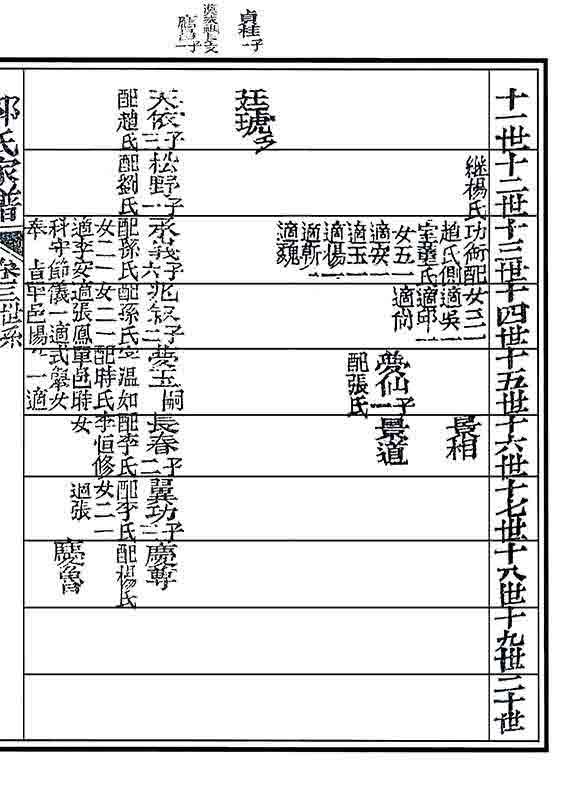 貞桂一子
十一世
十二世
十三世
十四世
十五世
十六世
十七世
十八世
十九世
二十世
繼楊氏
功術配
趙氏側
室龔氏
女五一
適安一
適玉一
適楊一
適靳一
適魏
女三一
適吳一
適邱一
適尙
景相
夢仙一子
配張氏
景道
廷琥
天依三子
配趙氏
松野一子
配劉氏
永義六子
配孫氏
女二一
適李安
科守節
奉
兆敘二子
配孫氏
女二一
適張鳳
儀一適
單邑楊
夢玉嗣
配時氏
單邑時
式舉女
一適
長春二子
配李氏
李恒修
女
溫如
翼功三子
配李氏
女二一
適張
慶尊
配楊氏
慶魯
邱氏家譜
卷三世系